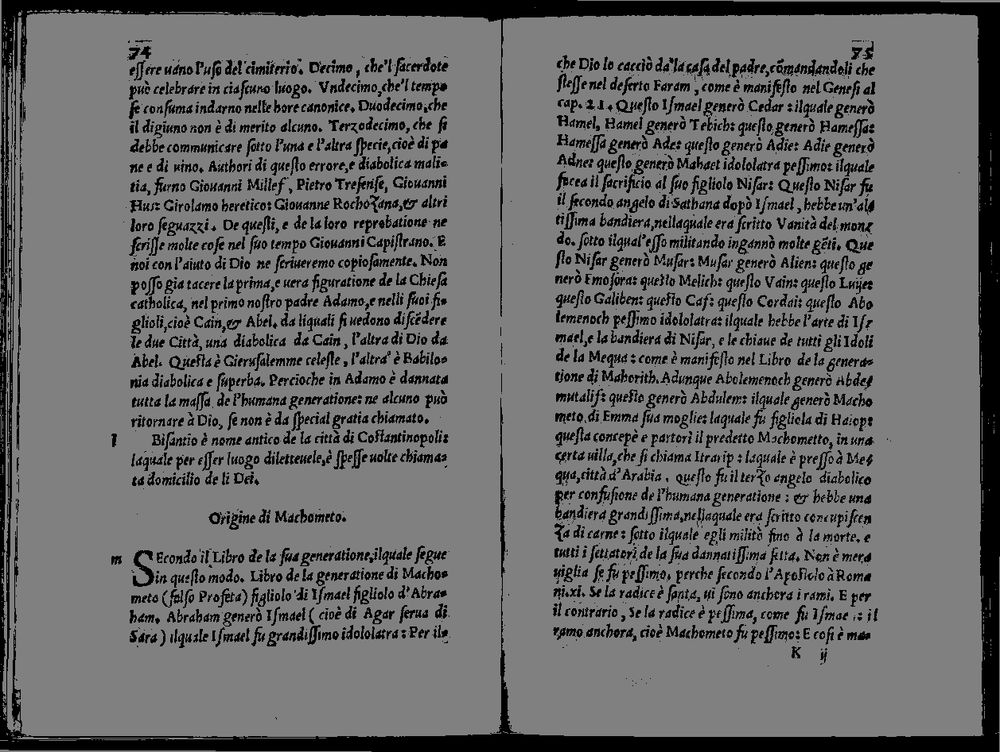 74
eſſere uano l'uſo del cimiterio. Decimo, che'l ſacerdote
può celebrare in ciaſcuno luogo. Vndecimo, che'l tempo
ſe conſuma indarno nelle hore canonice. Duodecimo, che
il digiuno non è di merito alcuno. Terzodecimo, che ſi
debbe communicare ſotto l'una e l'altra ſpecie, cioè di pa
ne e di uino. Authori di queſto errore, e diabolica mali-
tia, furno Giouanni Milleſ, Pietro Treſenſe, Giouanni
Hus: Girolamo heretico: Giouanne Rochozana, & altri
loro ſeguazzi. De queſti, e de la loro reprobatione ne
ſcriſſe molte coſe nel ſuo tempo Giouanni Capiſtrano. E
noi con l'aiuto di Dio ne ſcriueremo copioſamente. Non
poſſo gia tacere la prima, e uera figuratione de la Chieſa
catholica, nel primo noſtro padre Adamo, e nelli ſuoi fi-
glioli, cioè Cain, & Abel. da liquali ſi uedono diſcẽdere
le due Città, una diabolica da Cain, l'altra di Dio da
Abel. Queſta è Gieruſalemme celeſte, l'altra è Babilo-
nia diabolica e ſuperba. Percioche in Adamo è dannata
tutta la maſſa de l'humana generatione: ne alcuno può
ritornare à Dio, ſe non è da ſpecial gratia chiamato.
l Biſantio è nome antico de la città di Coſtantinopoli:
laquale per eſſer luogo diletteuele, è ſpeſſe uolte chiama-
ta domicilio de li Dei.
Origine di Machometo.
m SEcondo il Libro de la ſua generatione, ilquale ſegue
in queſto modo. Libro de la generatione di Macho-
meto (falſo Profeta) figliolo di Iſmael figliolo d'Abra-
ham. Abraham generò Iſmael (cioè di Agar ſerua di
Sara) ilquale Iſmael fu grandiſſimo idololatra: Per il-
75
che Dio lo cacciò da la caſa del padre, cõmandandoli che
ſteſſe nel deſerto Faram, come è manifeſto nel Geneſi al
cap. 21. Queſto Iſmael generò Cedar: ilquale generò
Hamel. Hamel generò Tebich: queſto generò Hameſſa:
Hameſſa generò Ade: queſto generò Adie: Adie generò
Adne: queſto generò Mahaet idololatra peſſimo: ilquale
facea il ſacrificio al ſuo figliolo Niſar: Queſto Niſar fu
il ſecondo angelo di Sathana dopò Iſmael, hebbe un'al-
tiſſima bandiera, nellaquale era ſcritto Vanità del mon-
do. ſotto ilqual'eſſo militando ingannò molte gẽti. Que
ſto Niſar generò Muſar: Muſar generò Alien: queſto ge
nerò Emoſora: queſto Melich: queſto Vain: queſto Luije:
queſto Galiben: queſto Caf: queſto Cordai: queſto Abo
lemenoch peſſimo idololatra: ilquale hebbe l'arte di Iſ-
mael, e la bandiera di Niſar, e le chiaue de tutti gli Idoli
de la Mequa: come è manifeſto nel Libro de la genera-
tione di Mahorith. Adunque Abolemenoch generò Abde-
mutalif: queſto generò Abdulem: ilquale generò Macho
meto, di Emma ſua moglie: laquale fu figliola di Haiop:
queſta concepè e partorì il predetto Machometto, in una
certa uilla, che ſi chiama Itrarip: laquale è preſſo à Me-
qua, città d'Arabia. queſto fu il terzo angelo diabolico
per confuſione de l'humana generatione: & hebbe una
bandiera grandiſſima, nellaquale era ſcritto concupiſcen
za di carne: ſotto ilquale egli militò fino à la morte. e
tutti i ſettatori de la ſua dannatiſſima ſetta. Non è mera
uiglia ſe fu peſſimo, perche ſecondo l'Apoſtolo à Roma
ni.xi. Se la radice è ſanta, ui ſono anchora i rami. E per
il contrario, Se la radice è peſſima, come fu Iſmael: il
ramo anchora, cioè Machometo fu peſſimo: E coſi è ma-
K ij